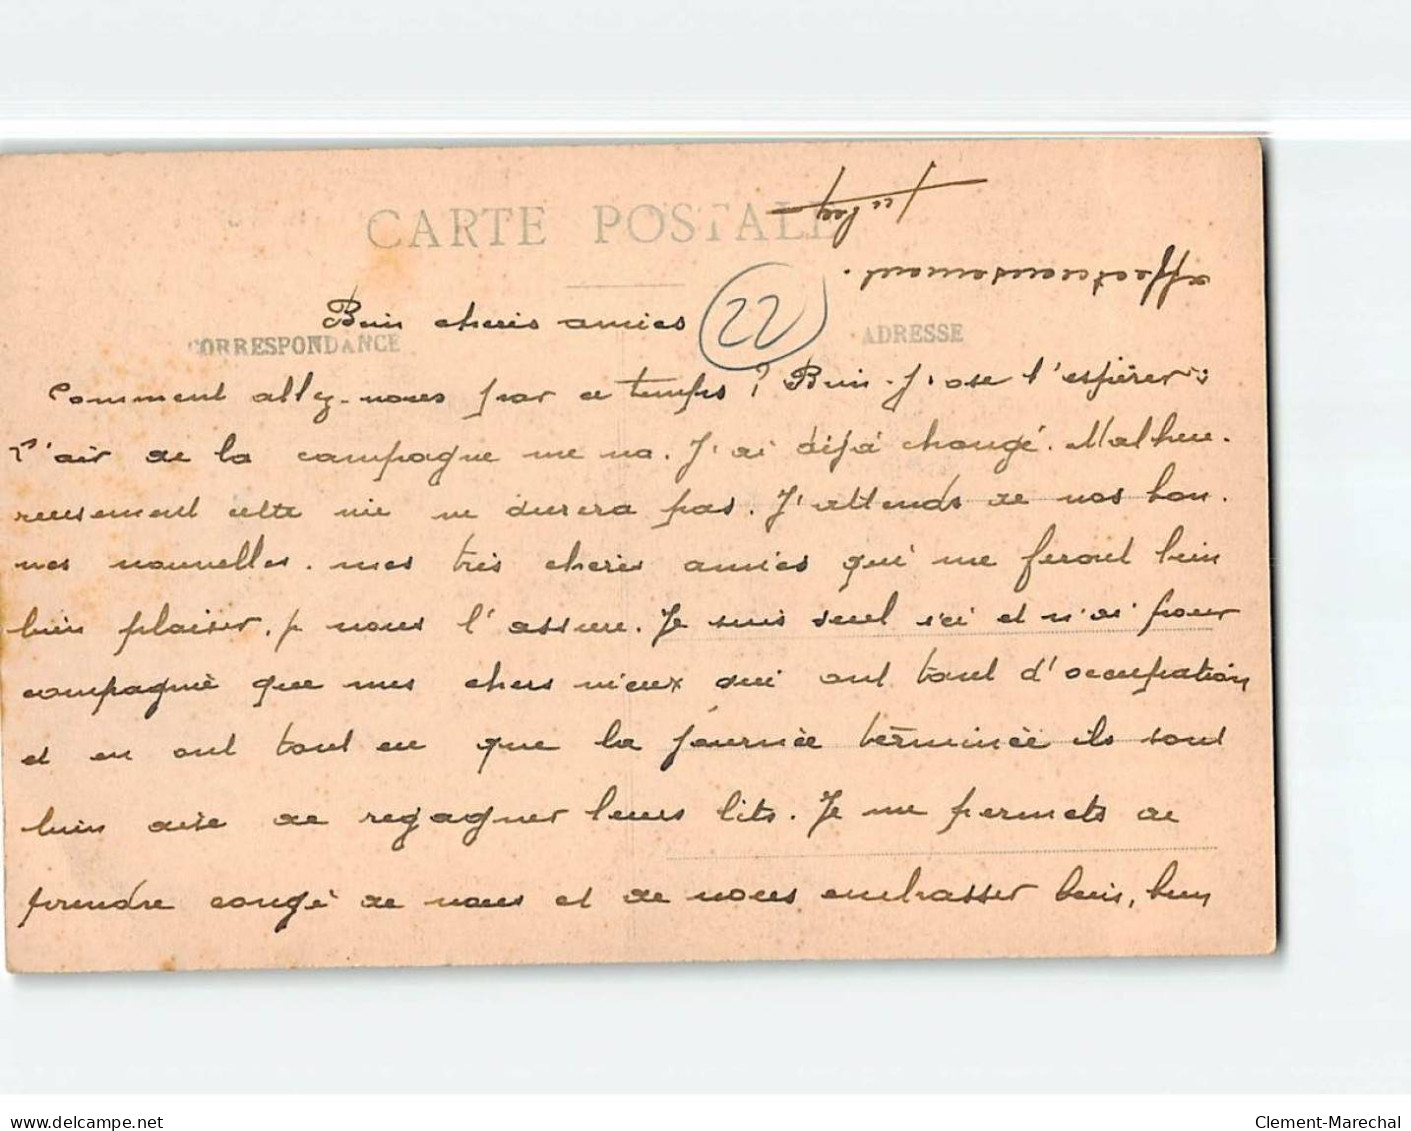 CARTE POSTALE
22
CORRESPONDANCE
ADRESSE
Bien cheries amies
Comment allez-vous par ce temps? Bien j'ose l'espérer
L'air de la campagne me va. J'ai déjà changé. Malheu-
reusement cette vie ne durera pas. J'attends de vos bon-
nes nouvelles. mes très cheries amies qui me feront bien
bien plaisir, je vous l'assure. Je suis seul ici et n'ai pour
compagnie que mes chers vieux qui ont tant d'occupation
et en ont tant eu que la journée terminée ils sont
bien aise de regagner leurs lits. Je me permets de
prendre congé de vous et de vous embrasser bien, bien
affectueusement.
www.delcampe.net
Clement-Marechal